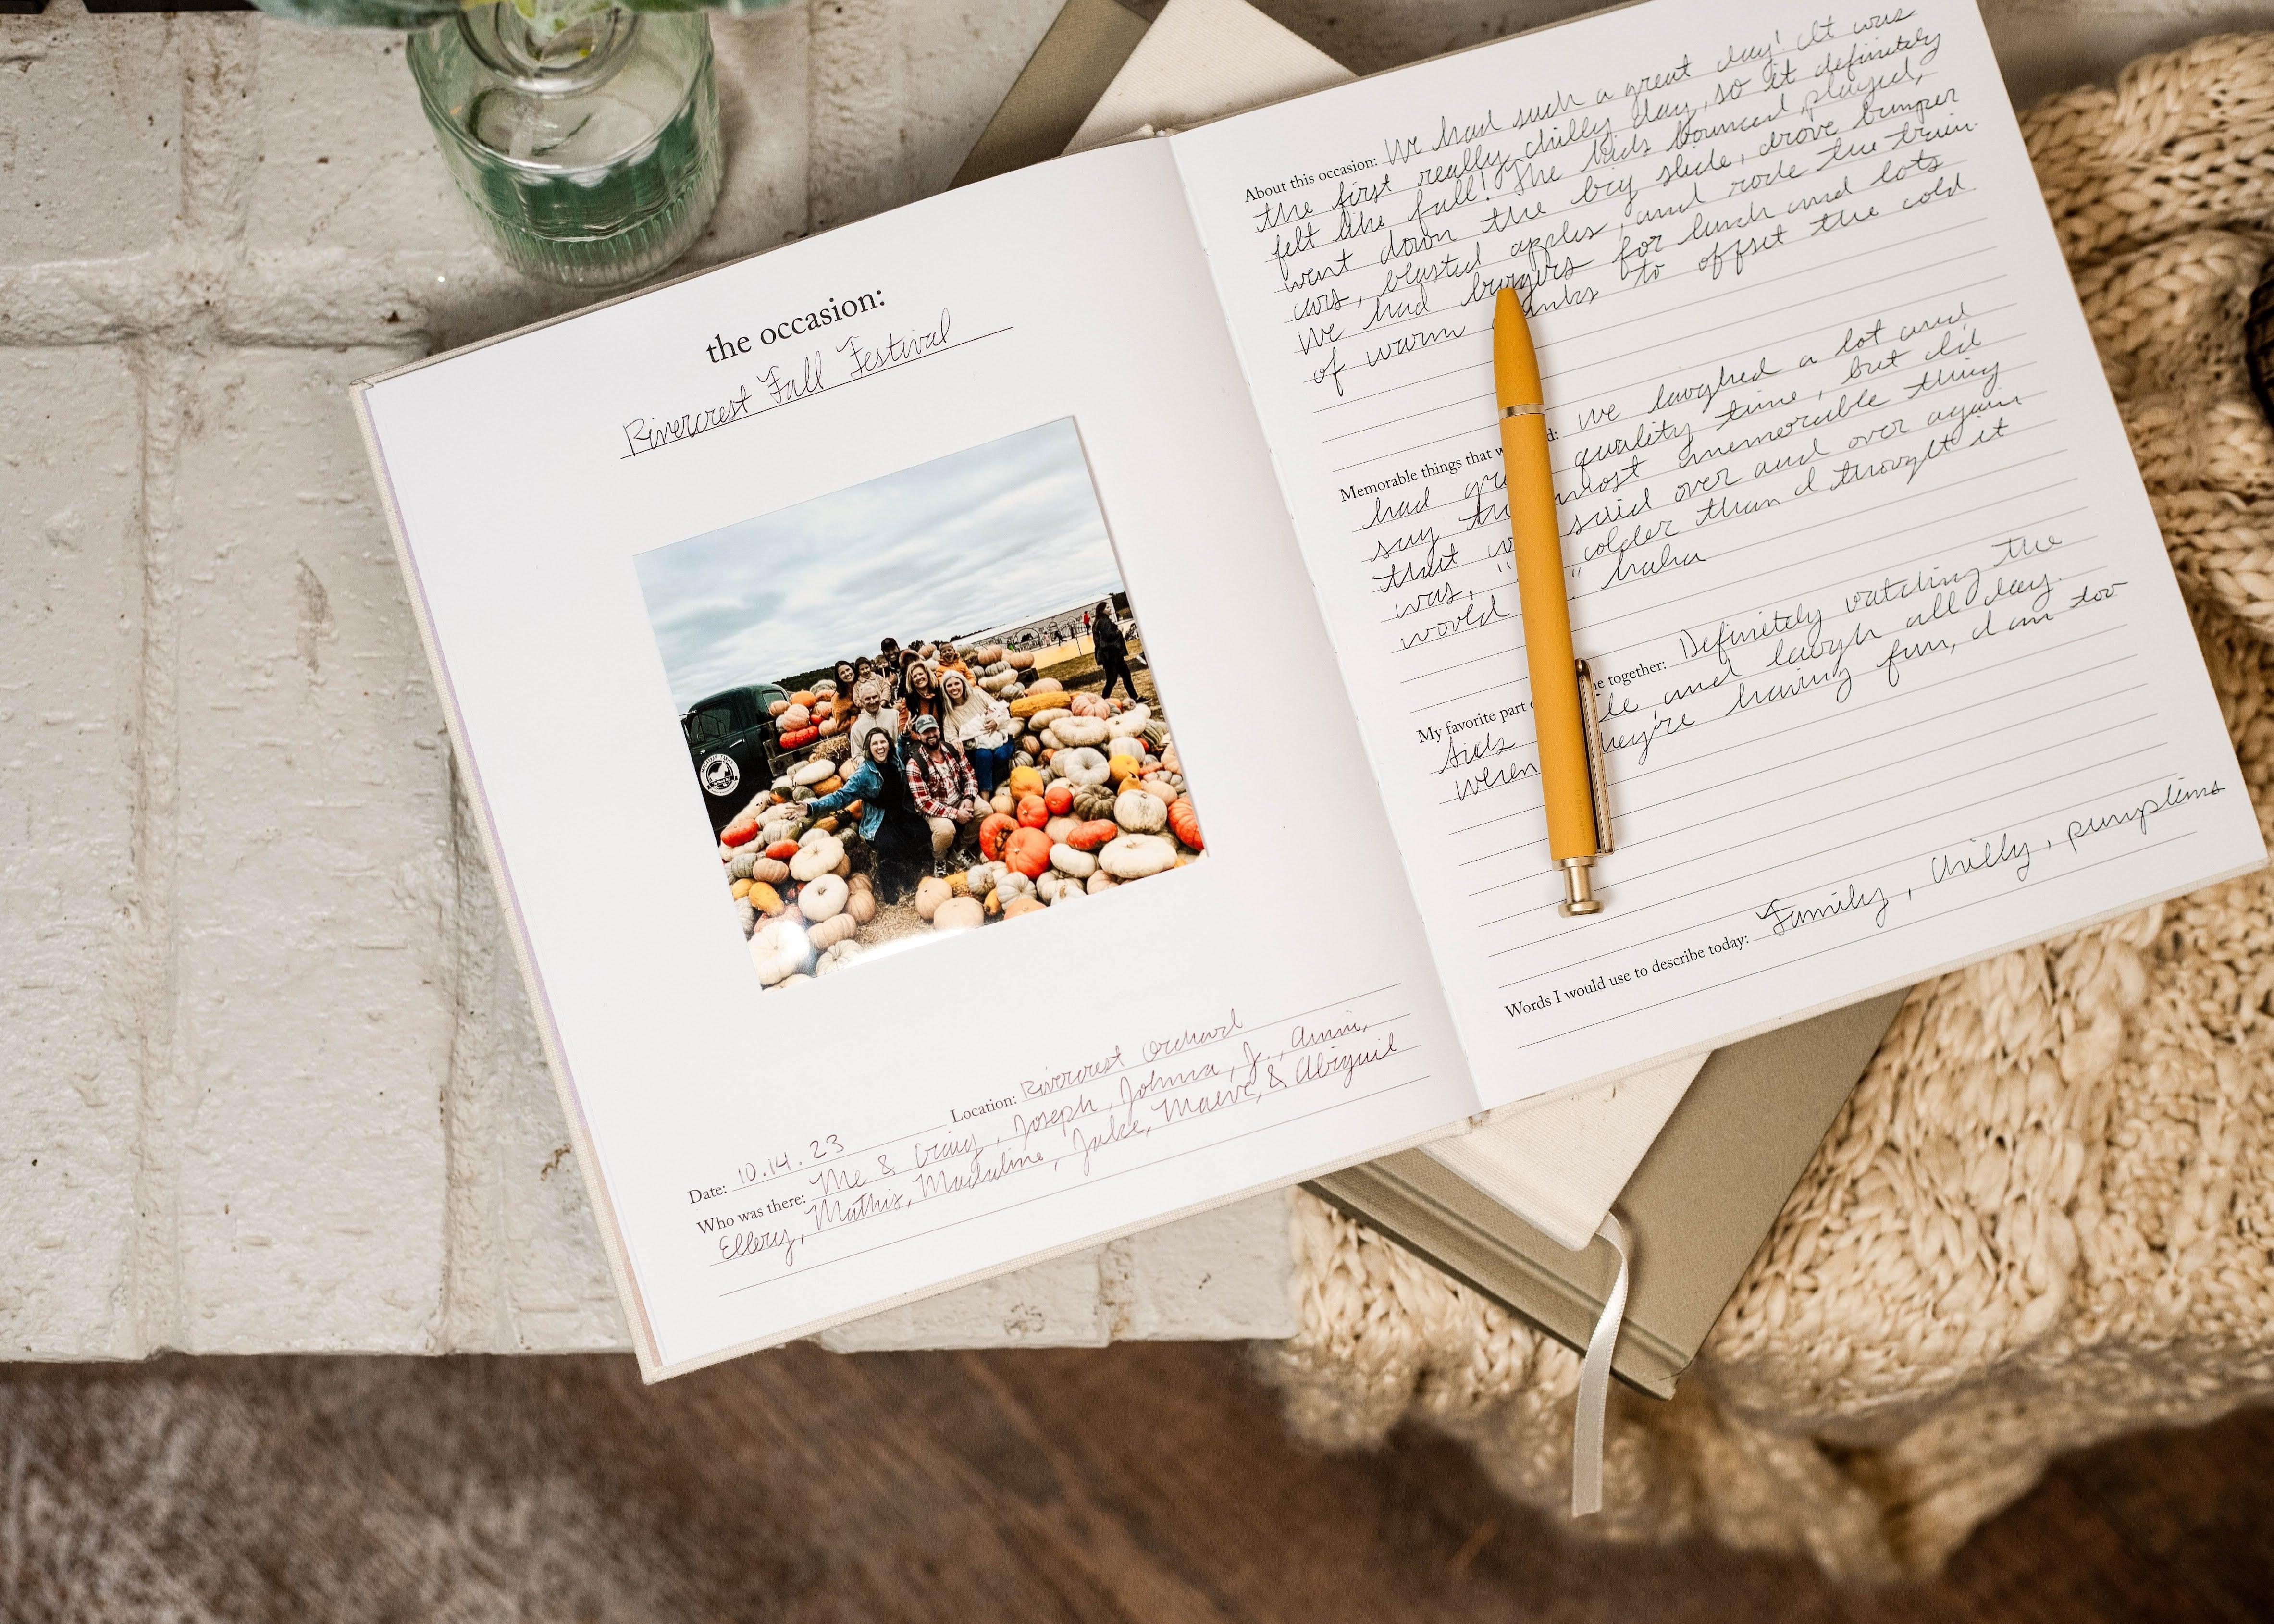 the occasion:
Rivercrest Fall Festival
Date: 10.14.23 Location: Rivercrest Orchard
Who was there: Me & Craig, Joseph, Johnna, Jr., Anni,
Ellery, Mathis, Madaline, Jake, Maeve, & Abigail
About this occasion: We had such a great day! It was
the first really chilly day, so it definitely
felt like fall! The kids bounced, played,
went down the big slide, drove bumper
cars, blasted apples, and rode the train.
We had burgers for lunch and lots
of warm to offset the cold
Memorable things that d: we laughed a lot and
had quality time, but I'd
say most memorable thing
that said over and over again
was, " colder than I thought it
would " haha
My favorite part together: Definitely watching the
kids and laugh all day.
they're having fun, I am too
Words I would use to describe today: Family, Chilly, pumpkins